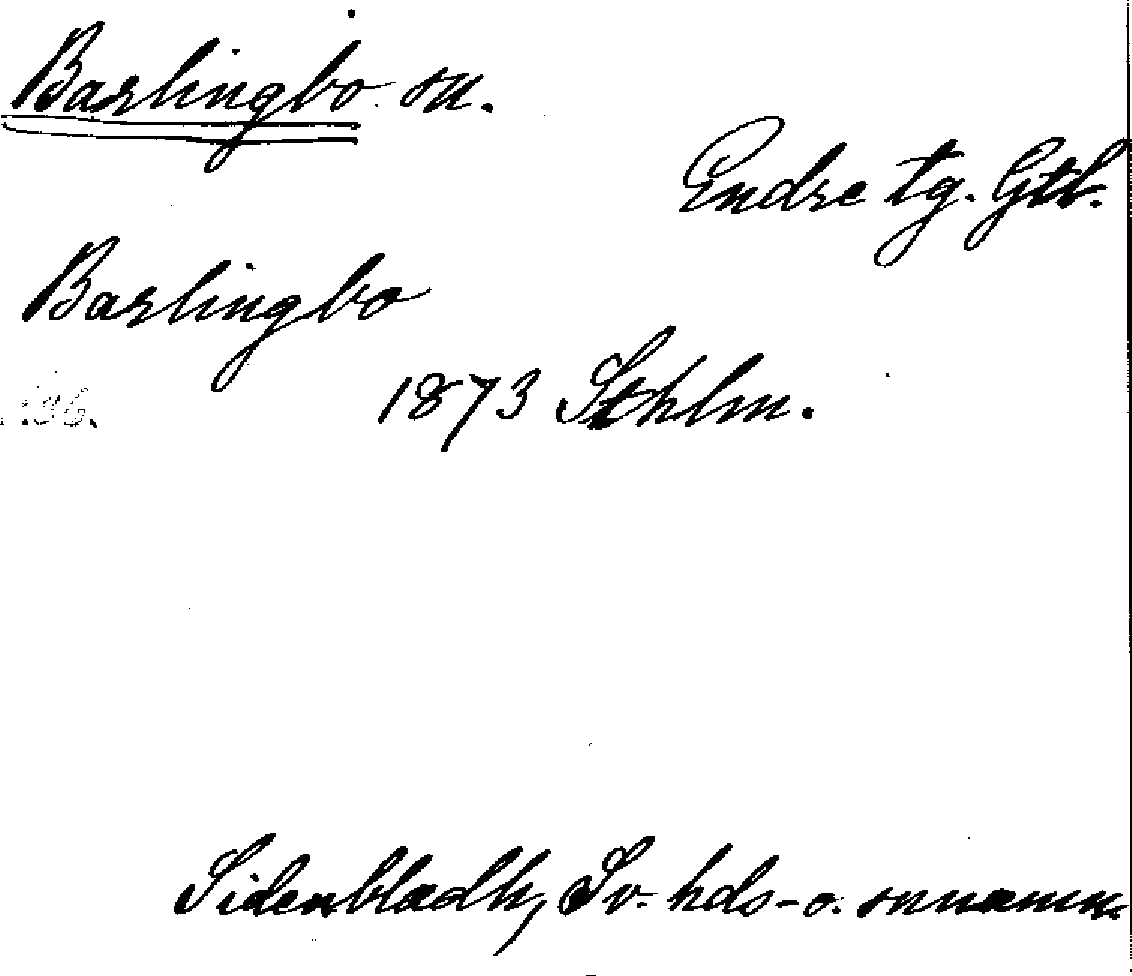 Barlingbo sn.
Endre tg. Gtl.
Barlingbo
1873 Sthlm.
Sidenbladh, Sv. hds- o. snnamn.